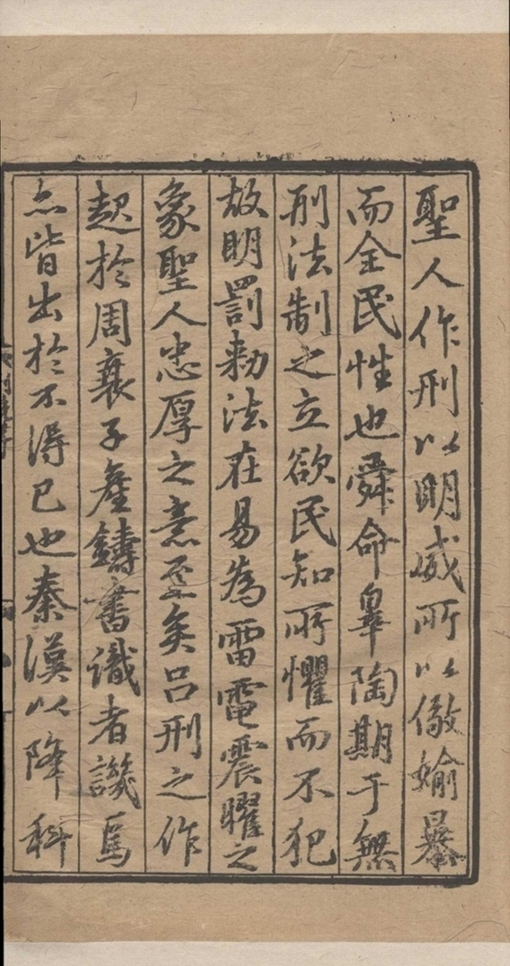 聖人作刑以明威所以儆媮暴
而全民性也舜命臯陶期于無
刑法制之立欲民知所懼而不犯
故明罰勅法在易為雷電震曜之
象聖人忠厚之意至矣呂刑之作
起於周衰子產鑄書識者譏焉
亦皆出於不得已也秦漢以降科